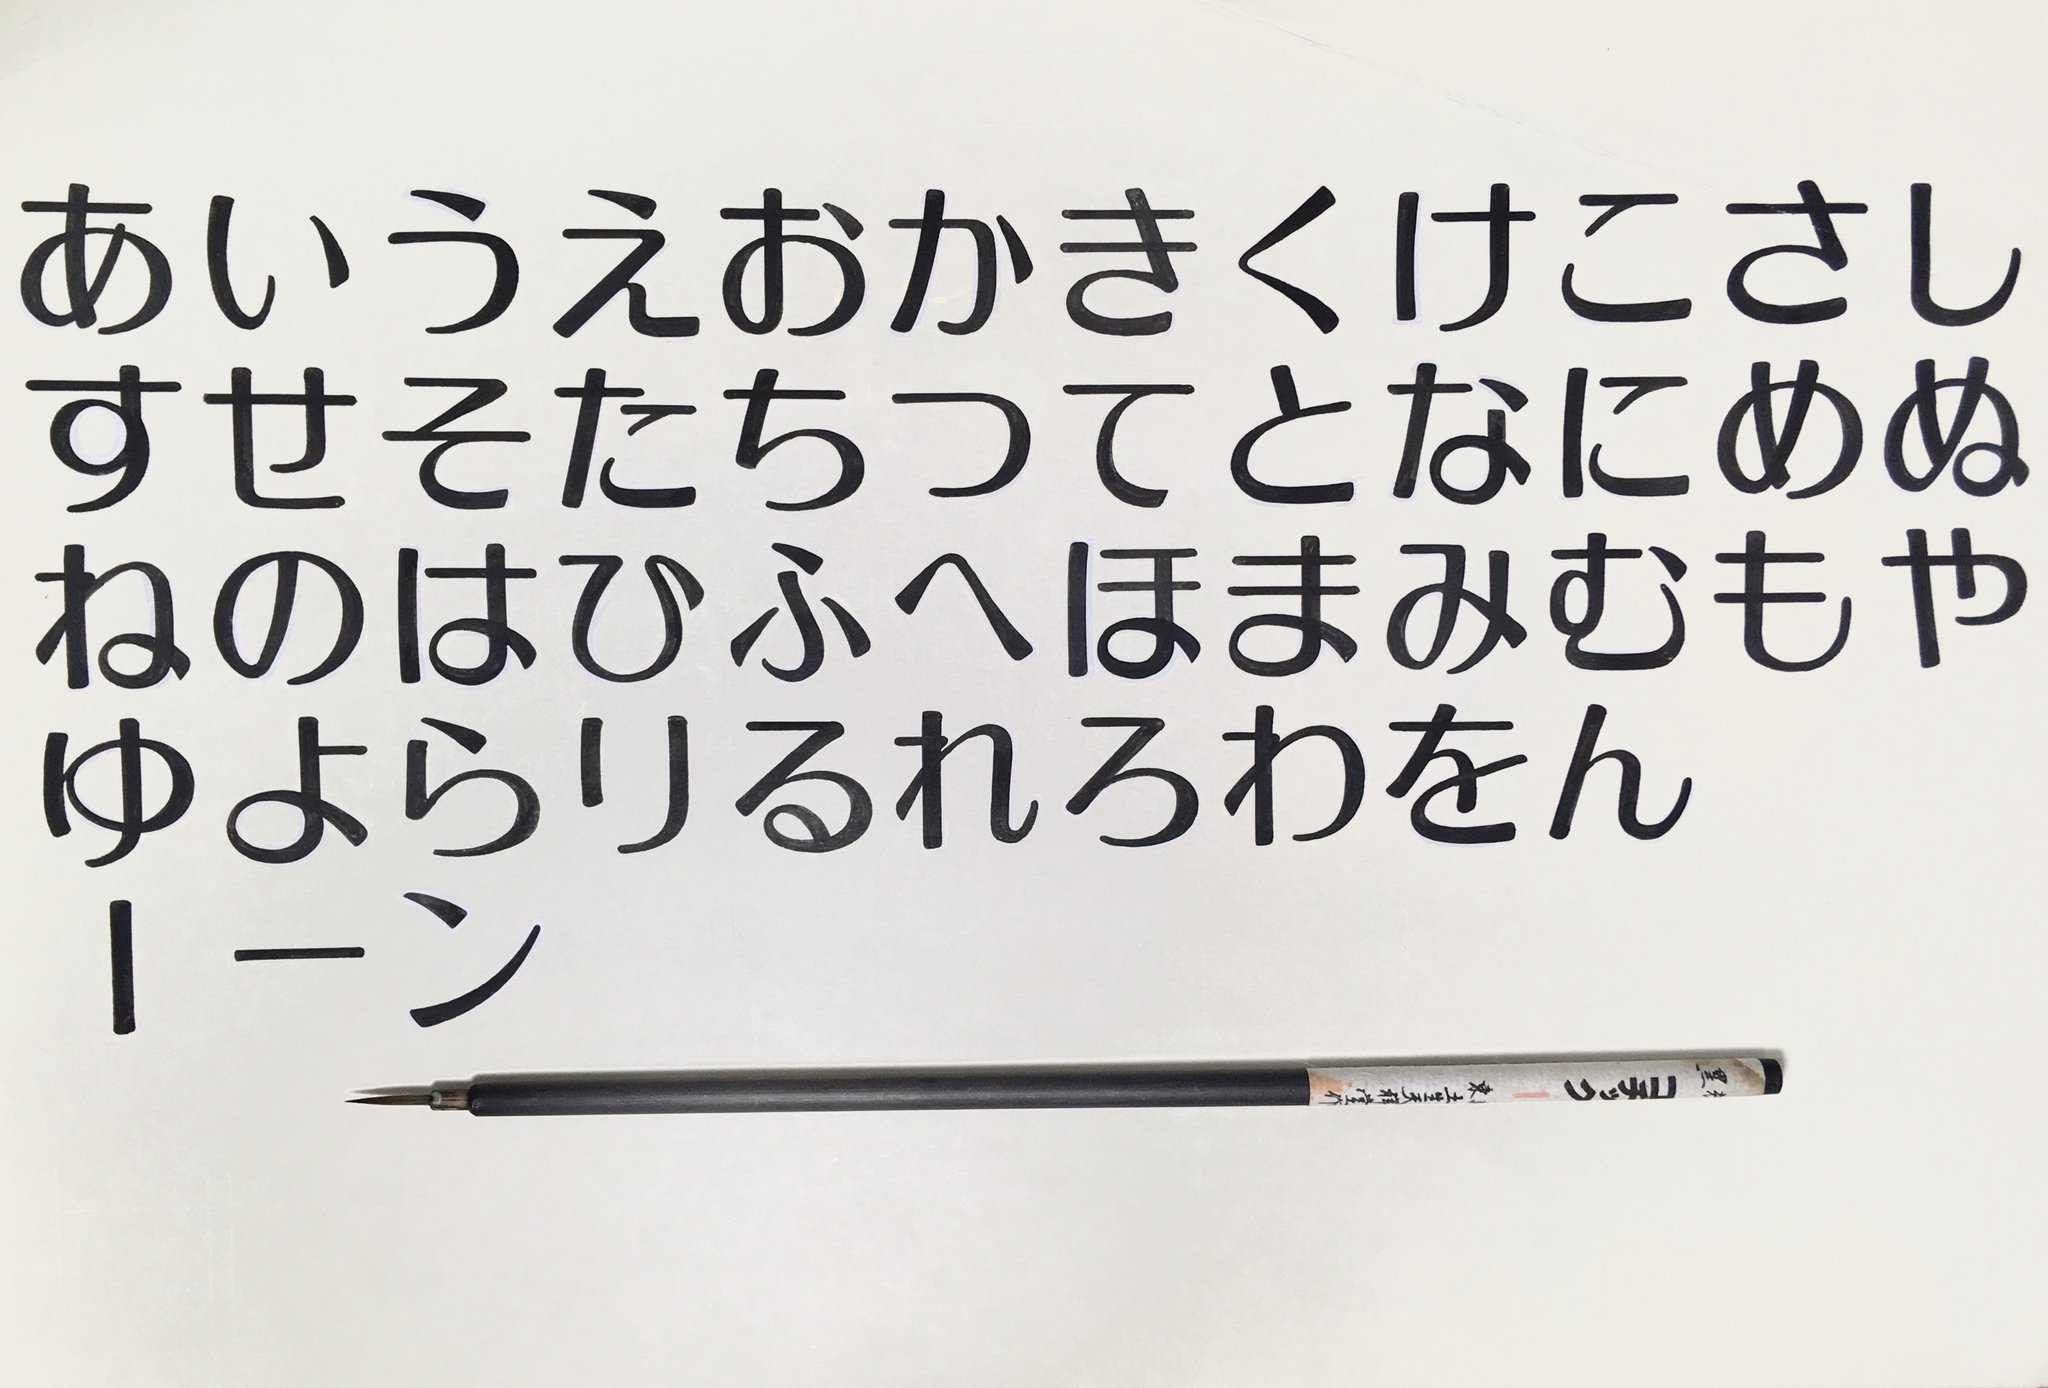 あいうえおかきくけこさし
すせそたちつてとなにめぬ
ねのはひふへほまみむもや
ゆよらりるれろわをん
｜ーン
コチック